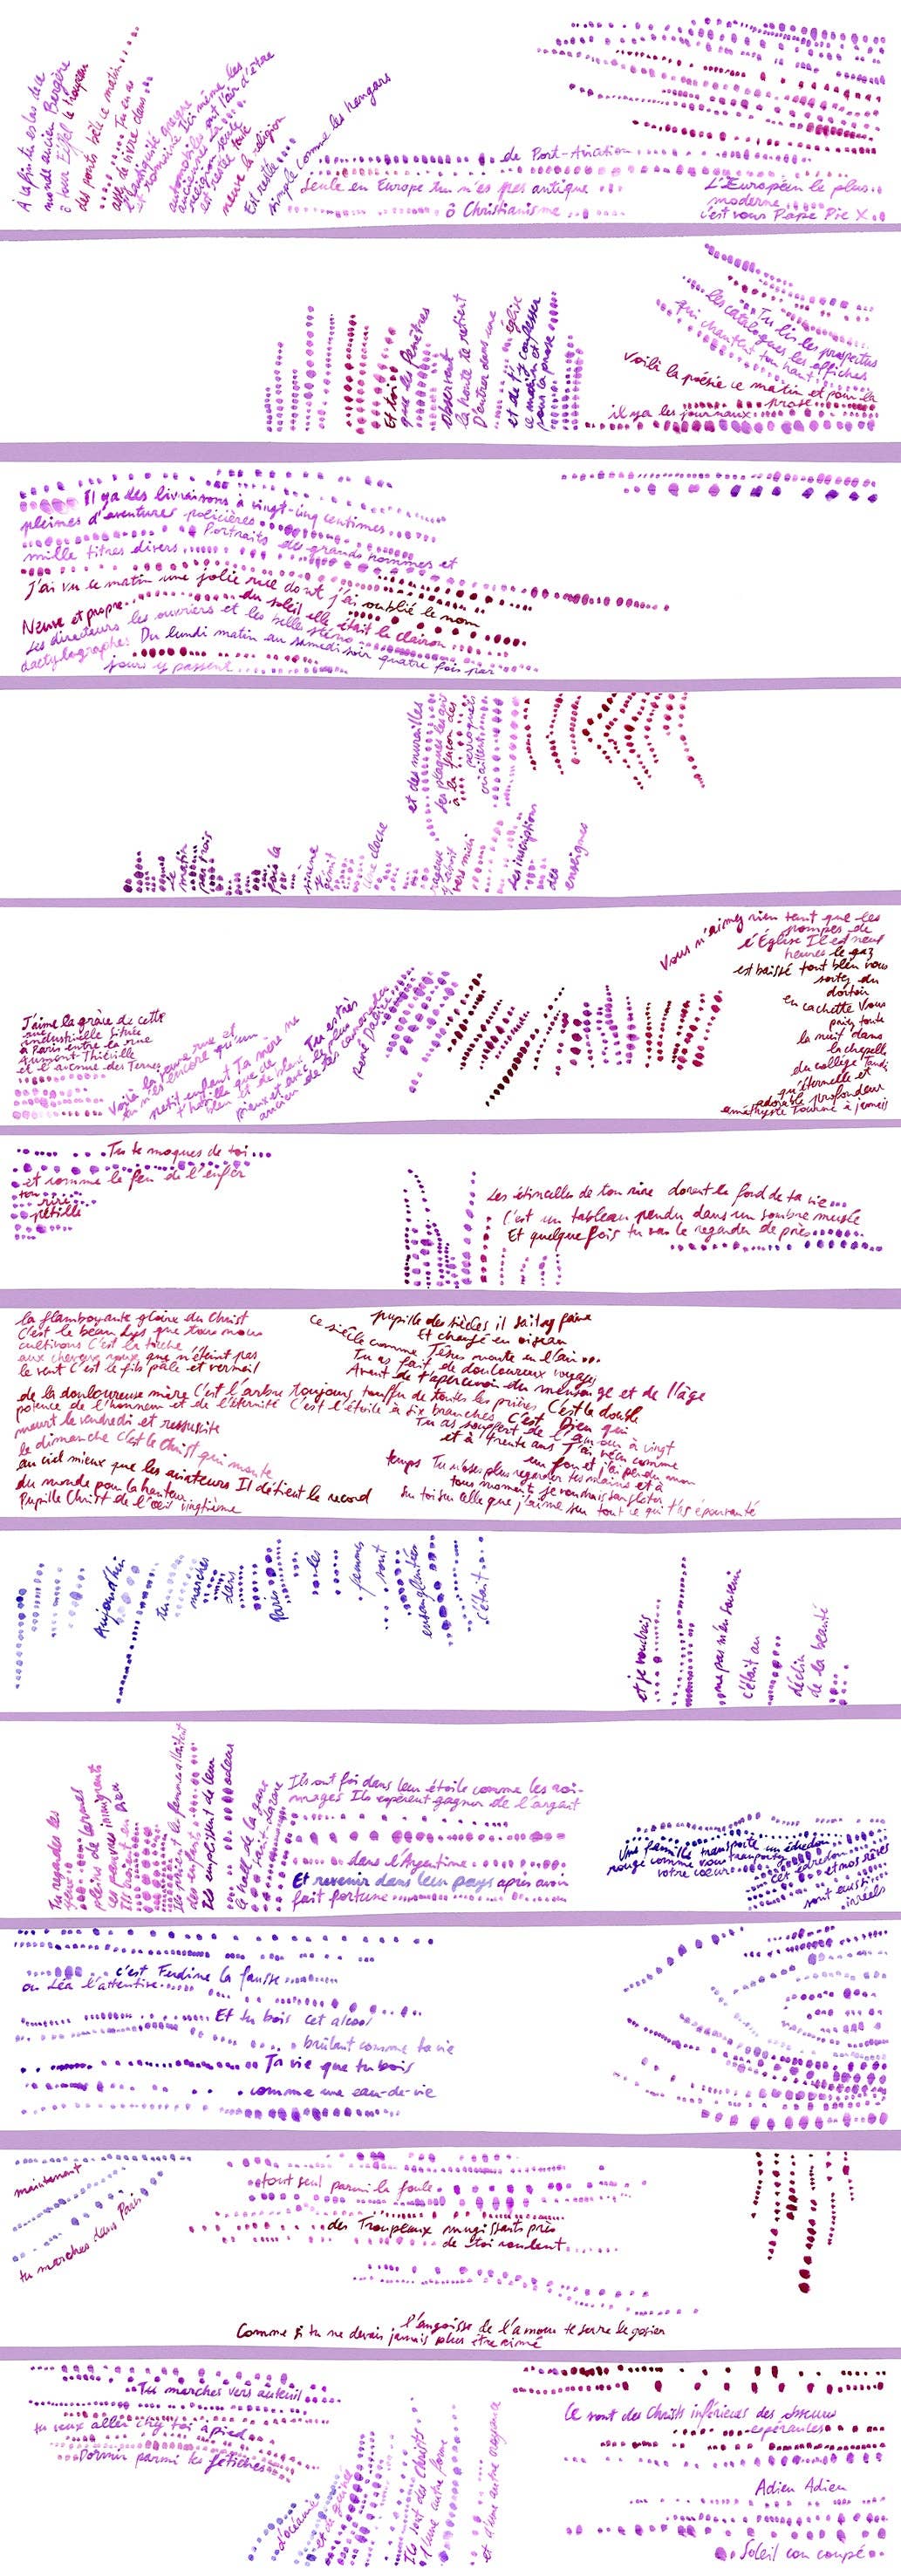 A la fin tu es las de ce
monde ancien Bergère
ô tour Eiffel le troupeau
des ponts bêle ce matin
Tu en as
assez de vivre dans
l'antiquité grecque
et romaine Ici même les
automobiles ont l'air d'être
anciennes La
religion seule
est restée toute
neuve la religion
Est restée
simple comme les hangars
de Port-Aviation
Seule en Europe tu n'es pas antique
ô Christianisme
L'Européen le plus
moderne
c'est vous Pape Pie X
Et toi
que les fenêtres
observent
la honte te retient
D'entrer dans une
église
et de t'y confesser
ce matin et
pour la prose
Tu lis les prospectus
les catalogues les affiches
qui chantent tout haut
Voilà la poésie ce matin et pour la
prose
il y a les journaux
Il y a des livraisons à vingt-cinq centimes
pleines d'aventures policières
Portraits des grands hommes et
mille titres divers
J'ai vu ce matin une jolie rue dont j'ai oublié le nom
Neuve et propre
du soleil elle était le clairon
Les directeurs les ouvriers et les belles sténo
dactylographes Du lundi matin au samedi soir quatre fois par
jours y passent
le
matin
par trois
fois la
sirène
y
gémit
Une cloche
rageuse
y aboie
vers midi
Les inscriptions
des
enseignes
et des murailles
les plaques les avis
à la façon des
perroquets
criaillent
J'aime la grâce de cette
rue
industrielle Située
à Paris entre la rue
Aumont-Thiéville
et l'avenue des Ternes
Voilà la jeune rue et
tu n'es encore qu'un
petit enfant Ta mère ne
t'habille que de
bleu et de blanc
Tu es très
pieux et avec le plus
ancien de tes camarades
René Dalize
Vous n'aimez rien tant que les
pompes de
l'Église Il est neuf
heures le gaz
est baissé tout bleu vous
sortez du
dortoir
en cachette Vous
priez toute
la nuit dans
la chapelle
du collège Tandis
qu'éternelle et
adorable profondeur
améthyste Tourne à jamais
Tu te moques de toi
et comme le feu de l'enfer
ton
rire
pétille
Les étincelles de ton rire dorent le fond de ta vie
C'est un tableau pendu dans un sombre musée
Et quelquefois tu vas le regarder de près
la flamboyante gloire du Christ
C'est le beau lys que tous nous
cultivons C'est la torche
aux cheveux roux que n'éteint pas
le vent C'est le fils pâle et vermeil
de la douloureuse mère C'est l'arbre toujours touffu de toutes les prières C'est la double
potence de l'honneur et de l'éternité C'est l'étoile à six branches C'est Dieu qui
meurt le vendredi et ressuscite
le dimanche C'est le Christ qui monte
au ciel mieux que les aviateurs Il détient le record
du monde pour la hauteur
Pupille Christ de l'œil vingtième
pupille des siècles il sait y faire
Et changé en oiseau
ce siècle comme Jésus monte en l'air
Tu as fait de douloureux voyages
Avant de t'apercevoir du mensonge et de l'âge
Tu as souffert de l'amour à vingt
et à trente ans J'ai vécu comme
un fou et j'ai perdu mon
temps Tu n'oses plus regarder tes mains et à
tous moments je voudrais sangloter
Sur toi sur celle que j'aime sur tout ce qui t'as épouvanté
Aujourd'hui
tu
marches
dans
Paris
les
femmes
sont
ensanglantées
C'était
et je voudrais
ne pas m'en souvenir
c'était au
déclin
de la beauté
Tu regardes les
yeux
pleins de larmes
ces pauvres émigrants
Ils croient en
Dieu
ils prient les femmes allaitent
des enfants
Ils emplissent de leur
odeur
le hall de la gare
Saint-Lazare
Ils ont foi dans leur étoile comme les rois-
mages Ils espèrent gagner de l'argent
dans l'Argentine
Et revenir dans leur pays après avoir
fait fortune
Une famille transporte un édredon
rouge comme vous transportez
votre cœur
cet édredon
et nos rêves
sont aussi
irréels
c'est Ferdine la fausse
ou Léa l'attentive
Et tu bois cet alcool
brûlant comme ta vie
Ta vie que tu bois
comme une eau-de-vie
maintenant
tu marches dans Paris
tout seul parmi la foule
des Troupeaux mugissants près
de toi roulent
l'angoisse de l'amour te serre le gosier
Comme si tu ne devais jamais plus être aimé
Tu marches vers auteuil
tu veux aller chez toi à pied
Dormir parmi tes fétiches
d'océanie
et de guinée
Ils sont des christs
d'une autre forme
et d'une autre croyance
Ce sont des Christs inférieurs des obscures
espérances
Adieu Adieu
Soleil cou coupé